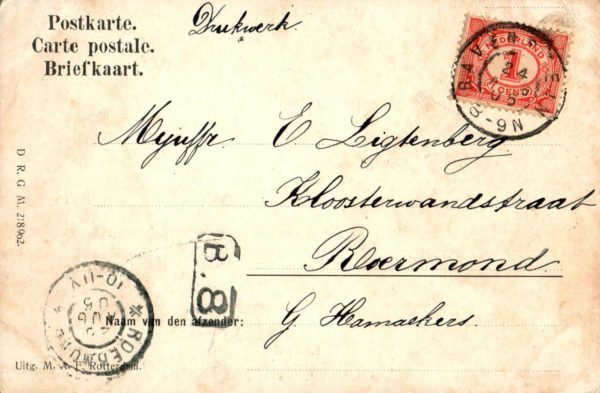 Postkarte.
Carte postale.
Briefkaart.
Drukwerk.
NEDERLAND
1
CENT
24
8-9N
Mejuffr. E Ligtenberg
Kloosterwandstraat
Roermond
D R G M. 218962.
B.8
10-11V
ROERMOND
Naam van den afzender:
G Hamackers.
Uitg. M. A. F. Rotterdam.